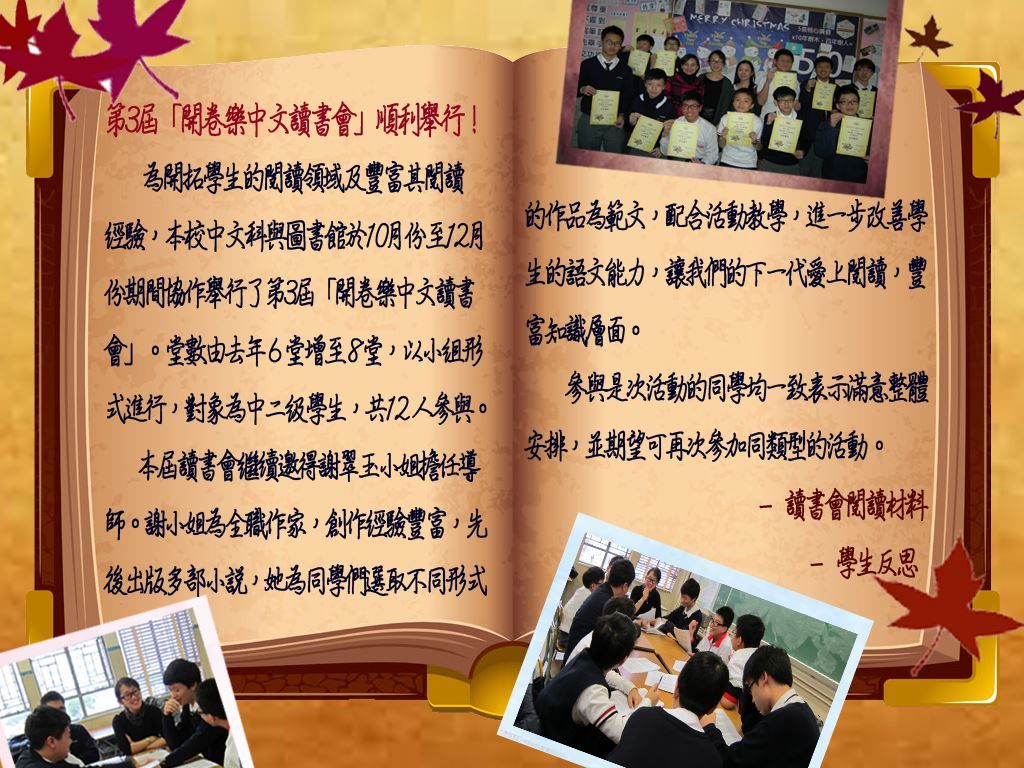 第3屆「開卷樂中文讀書會」順利舉行！
為開拓學生的閱讀領域及豐富其閱讀
經驗，本校中文科與圖書館於10月份至12月
份期間協作舉行了第3屆「開卷樂中文讀書
會」。堂數由去年6堂增至8堂，以小組形
式進行，對象為中二級學生，共12人參與。
本屆讀書會繼續邀得謝翠玉小姐擔任導
師。謝小姐為全職作家，創作經驗豐富，先
後出版多部小說，她為同學們選取不同形式
MERRY CHRISTMAS
50
的作品為範文，配合活動教學，進一步改善學
生的語文能力，讓我們的下一代愛上閱讀，豐
富知識層面。
參與是次活動的同學均一致表示滿意整體
安排，並期望可再次參加同類型的活動。
- 讀書會閱讀材料
- 學生反思